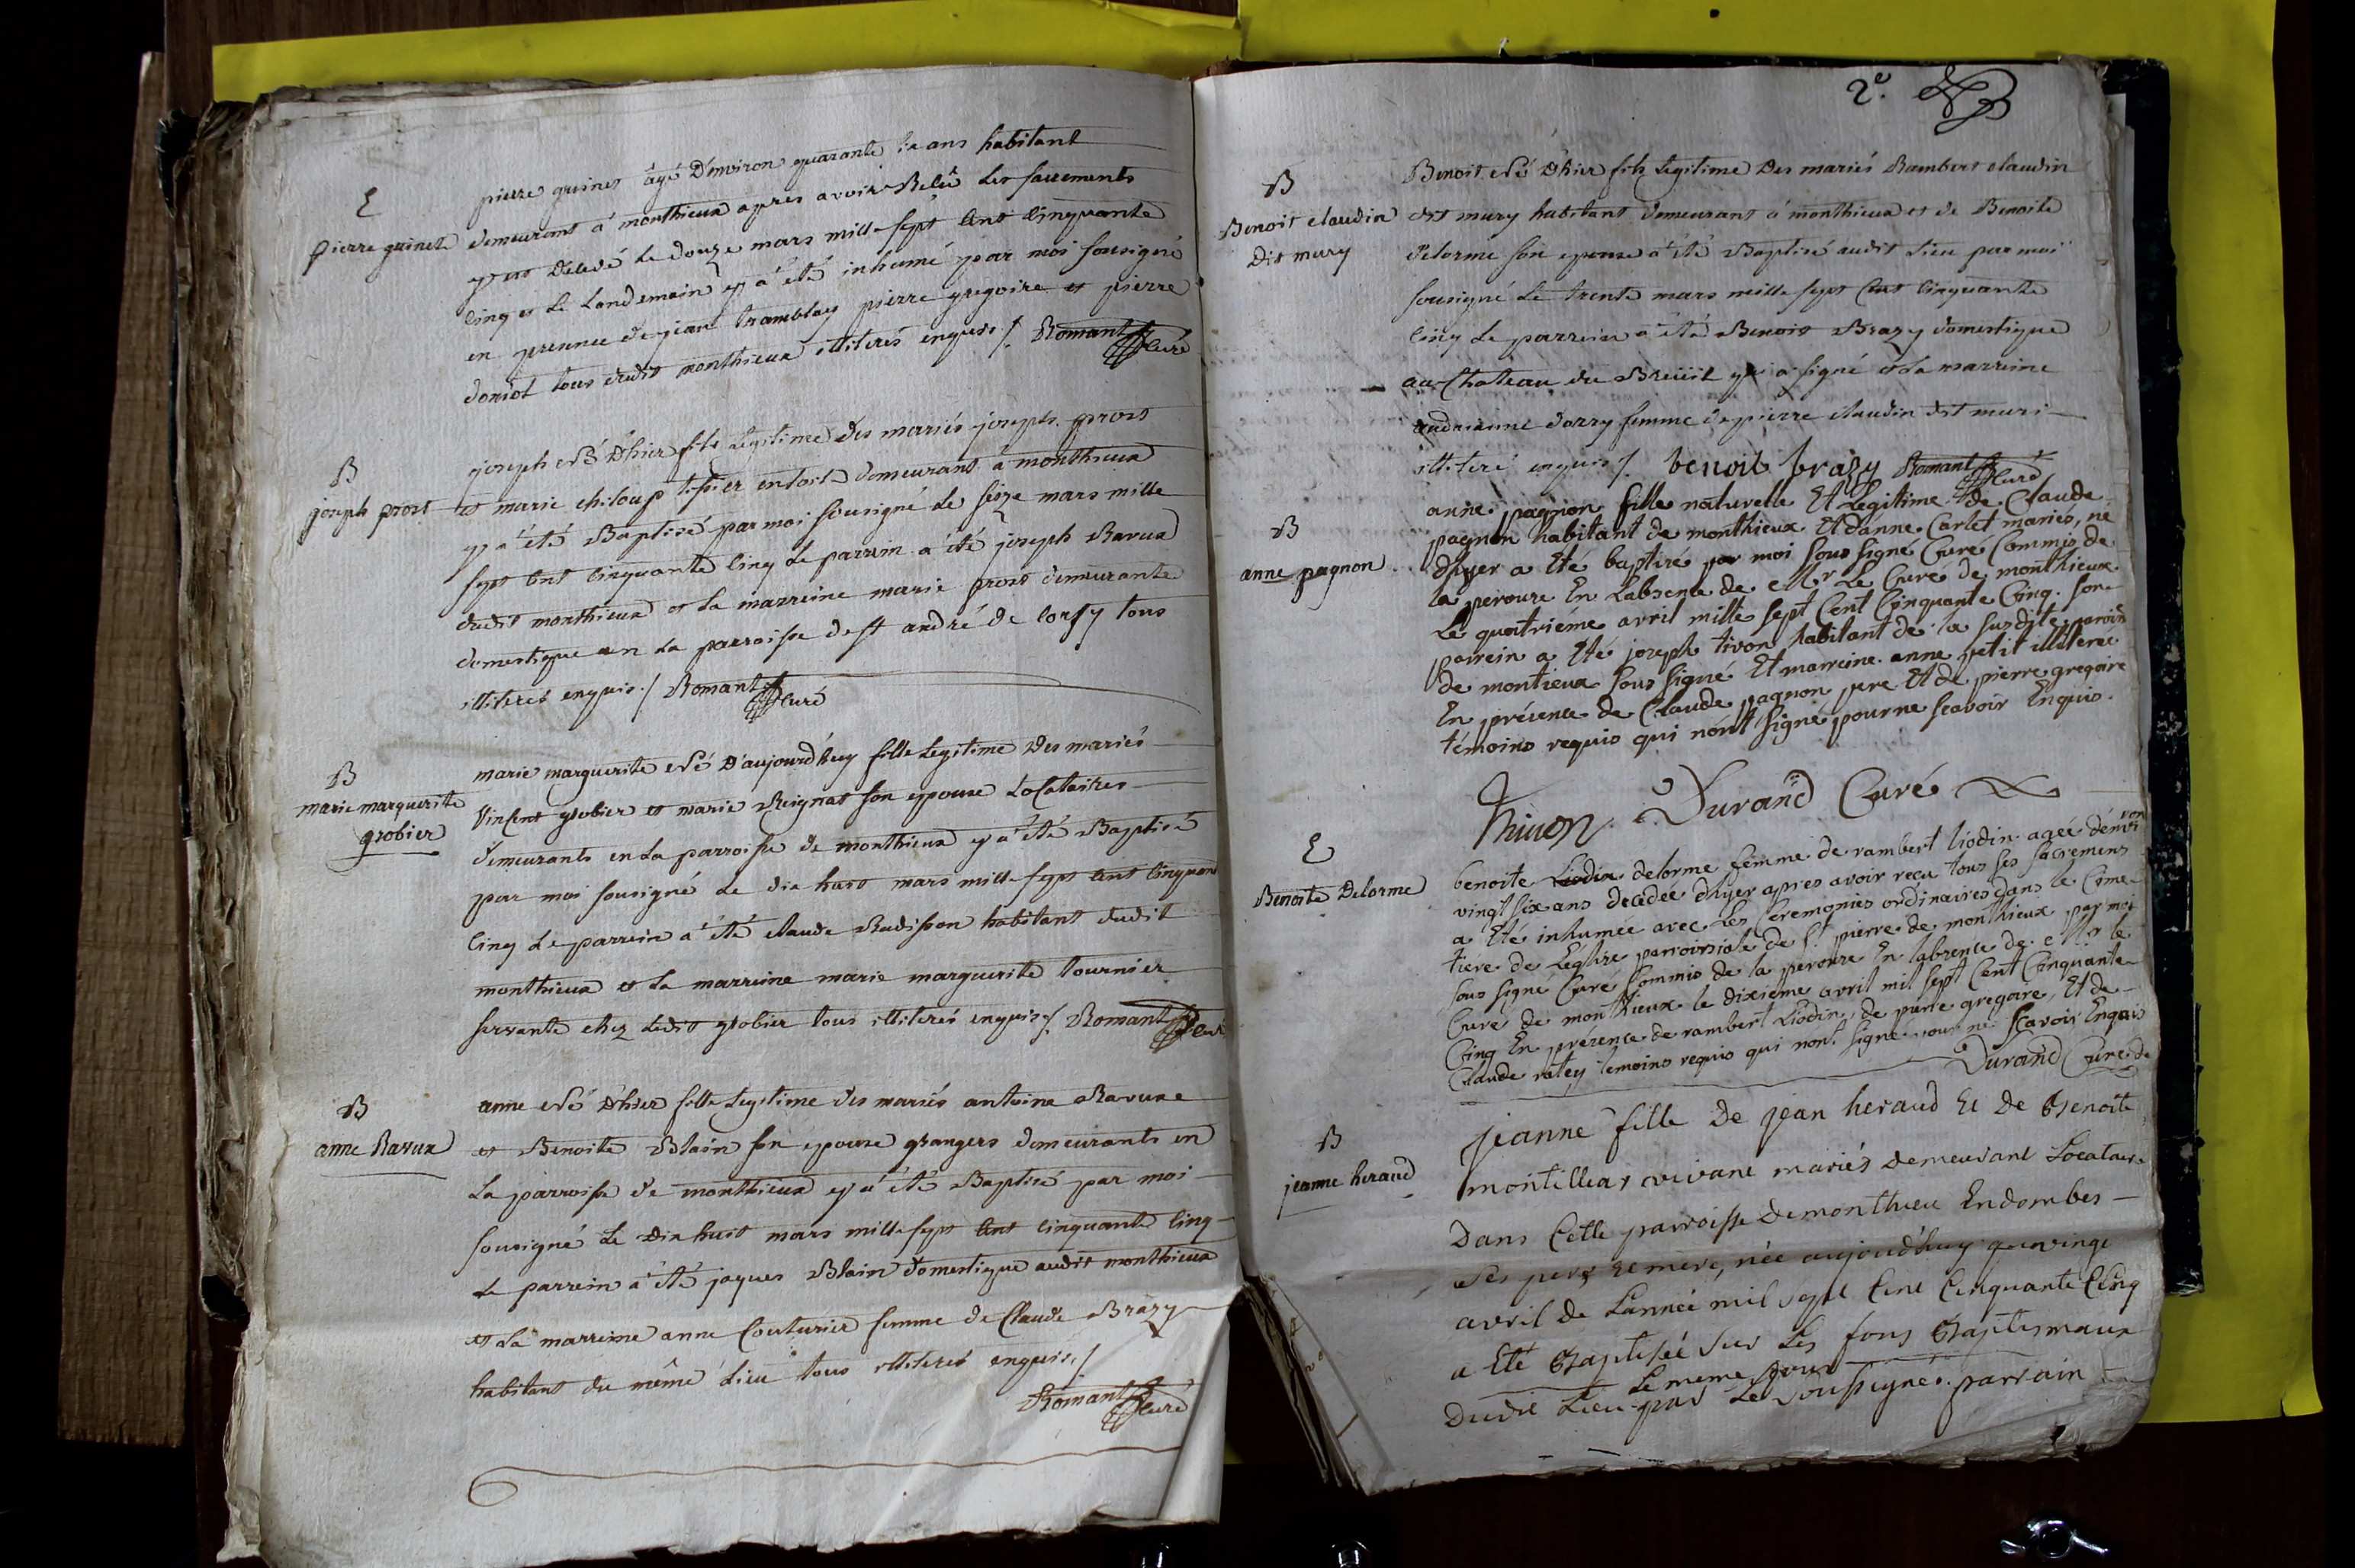 E
pierre guinet âgé D'environ quarante six ans habitant
pierre guinet demeurant à monthieux apres avoir Reçû Les sacrements
y est décédé Le douze mars mille sept Cent Cinquante
Cinq et Le Landemain y a été inhumé par moi sousigné
en presence de jean tramblay pierre gregoire et pierre
tous dudit monthieux illiterés enquis ./. Romant Curé
B
joseph prost
joseph Né D'hier fils Legitime des mariés joseph prost
et marie chiloup demeurant à monthieux
y a été Baptisé par moi sousigné Le seize mars mille
sept Cent Cinquante Cinq Le parrein a été joseph Ravux
dudit monthieux et La marreine marie prost demeurante
domestique en La parroisse de st andré de Corsy tous
illiterés enquis ./. Romant Curé
B
marie marguerite
grobier
marie marguerite Né D'aujourd'huy fille Legitime Des mariés
Vincent grobier et marie Reignat son epouse Locataires
demeurants en La parroisse de monthieux y a été Baptisé
par moi sousigné Le dix huit mars mille sept Cent Cinquante
Cinq Le parrein a été claude Radisson habitant dudit
monthieux et La marreine marie marguerite tournier
servante chez Ledit grobier tous illiterés enquis ./. Romant Curé
B
anne Ravux
anne Né D'hier fille Legitime des mariés antoine Ravuxe
et Benoite Blain son epouse grangers demeurants en
La parroisse de monthieux y a été Baptisé par moi
sousigné Le Dix huit mars mille sept Cent Cinquante Cinq
Le parrein a été jaques Blain domestique audit monthieux
et La marreine anne Couturier femme de Claude Brazy
habitant du même Lieu tous illiterés enquis ./.
Romant Curé
2e.
B
Benoit claudin
Dit mury
Benoit Né D'hier fils Legitime Des mariés Rambert claudin
dit mury habitant demeurant à monthieux et de Benoite
Delorme son epouse a été Baptisé audit Lieu par moi
sousigné Le trente mars mille sept Cent Cinquante
Cinq Le parrein a été Benoit Brazy domestique
au Chateau du Breüil qui a signé et La marreine
andrianne darzy femme de pierre claudin dit muri
illiteré enquis ./. benoit brazy Romant Curé
B
anne pagnon
anne pagnon fille naturelle Et Legitime de Claude
pagnon habitant de monthieux Et danne Carlet mariés, né
d'hyer a Eté baptisé par moi sous signé Curé Commis de
la perouse En Labsence de Mr Le Curé de monthieux
Le quatriéme avril mille sept Cent Cinquante Cinq. son
parrein a Eté joseph tivon habitant de la susdite paroiss
de montieux sous signé Et marreine anne petit illiteree
En présence de Claude pagnon pere Et de pierre gregoire
témoins requis qui nont signé pour ne scavoir Enquis.
thivon Durand Curé
E
Benoite Delorme
benoite Liodin delorme femme de rambert liodin agée denvi
ron
vingt six ans decedee d'hyer apres avoir recu tous ses sacremens
a Eté inhumée avec Les Ceremonies ordinaires dans le Cime-
tiere de Léglise parroissiale de St pierre de monthieux par moi
sous signé Curé Commis de la perouse En labsence de Mr le
Curé de monthieux le dixieme avril mil sept Cent Cinquante
Cinq En présence de rambert Liodin, de pierre gregoire, Et de
Claude ratey temoins requis qui nont signé pour ne scavoir Enquis
Durand Curé de
B
jeanne heraud
jeanne fille De jean heraud Et De Benoite
montillear vivant mariés demeurant Locataire
Dans Cette parroisse de monthieu En dombes
ses pere et mere, née aujourd'huy quinzinge
avril de Lannée mil sept Cent Cinquante Cinq
a Eté Baptisée sur Les fons Baptismaux
Le meme jour
Dudit Lieu par Le soussigné. parrain